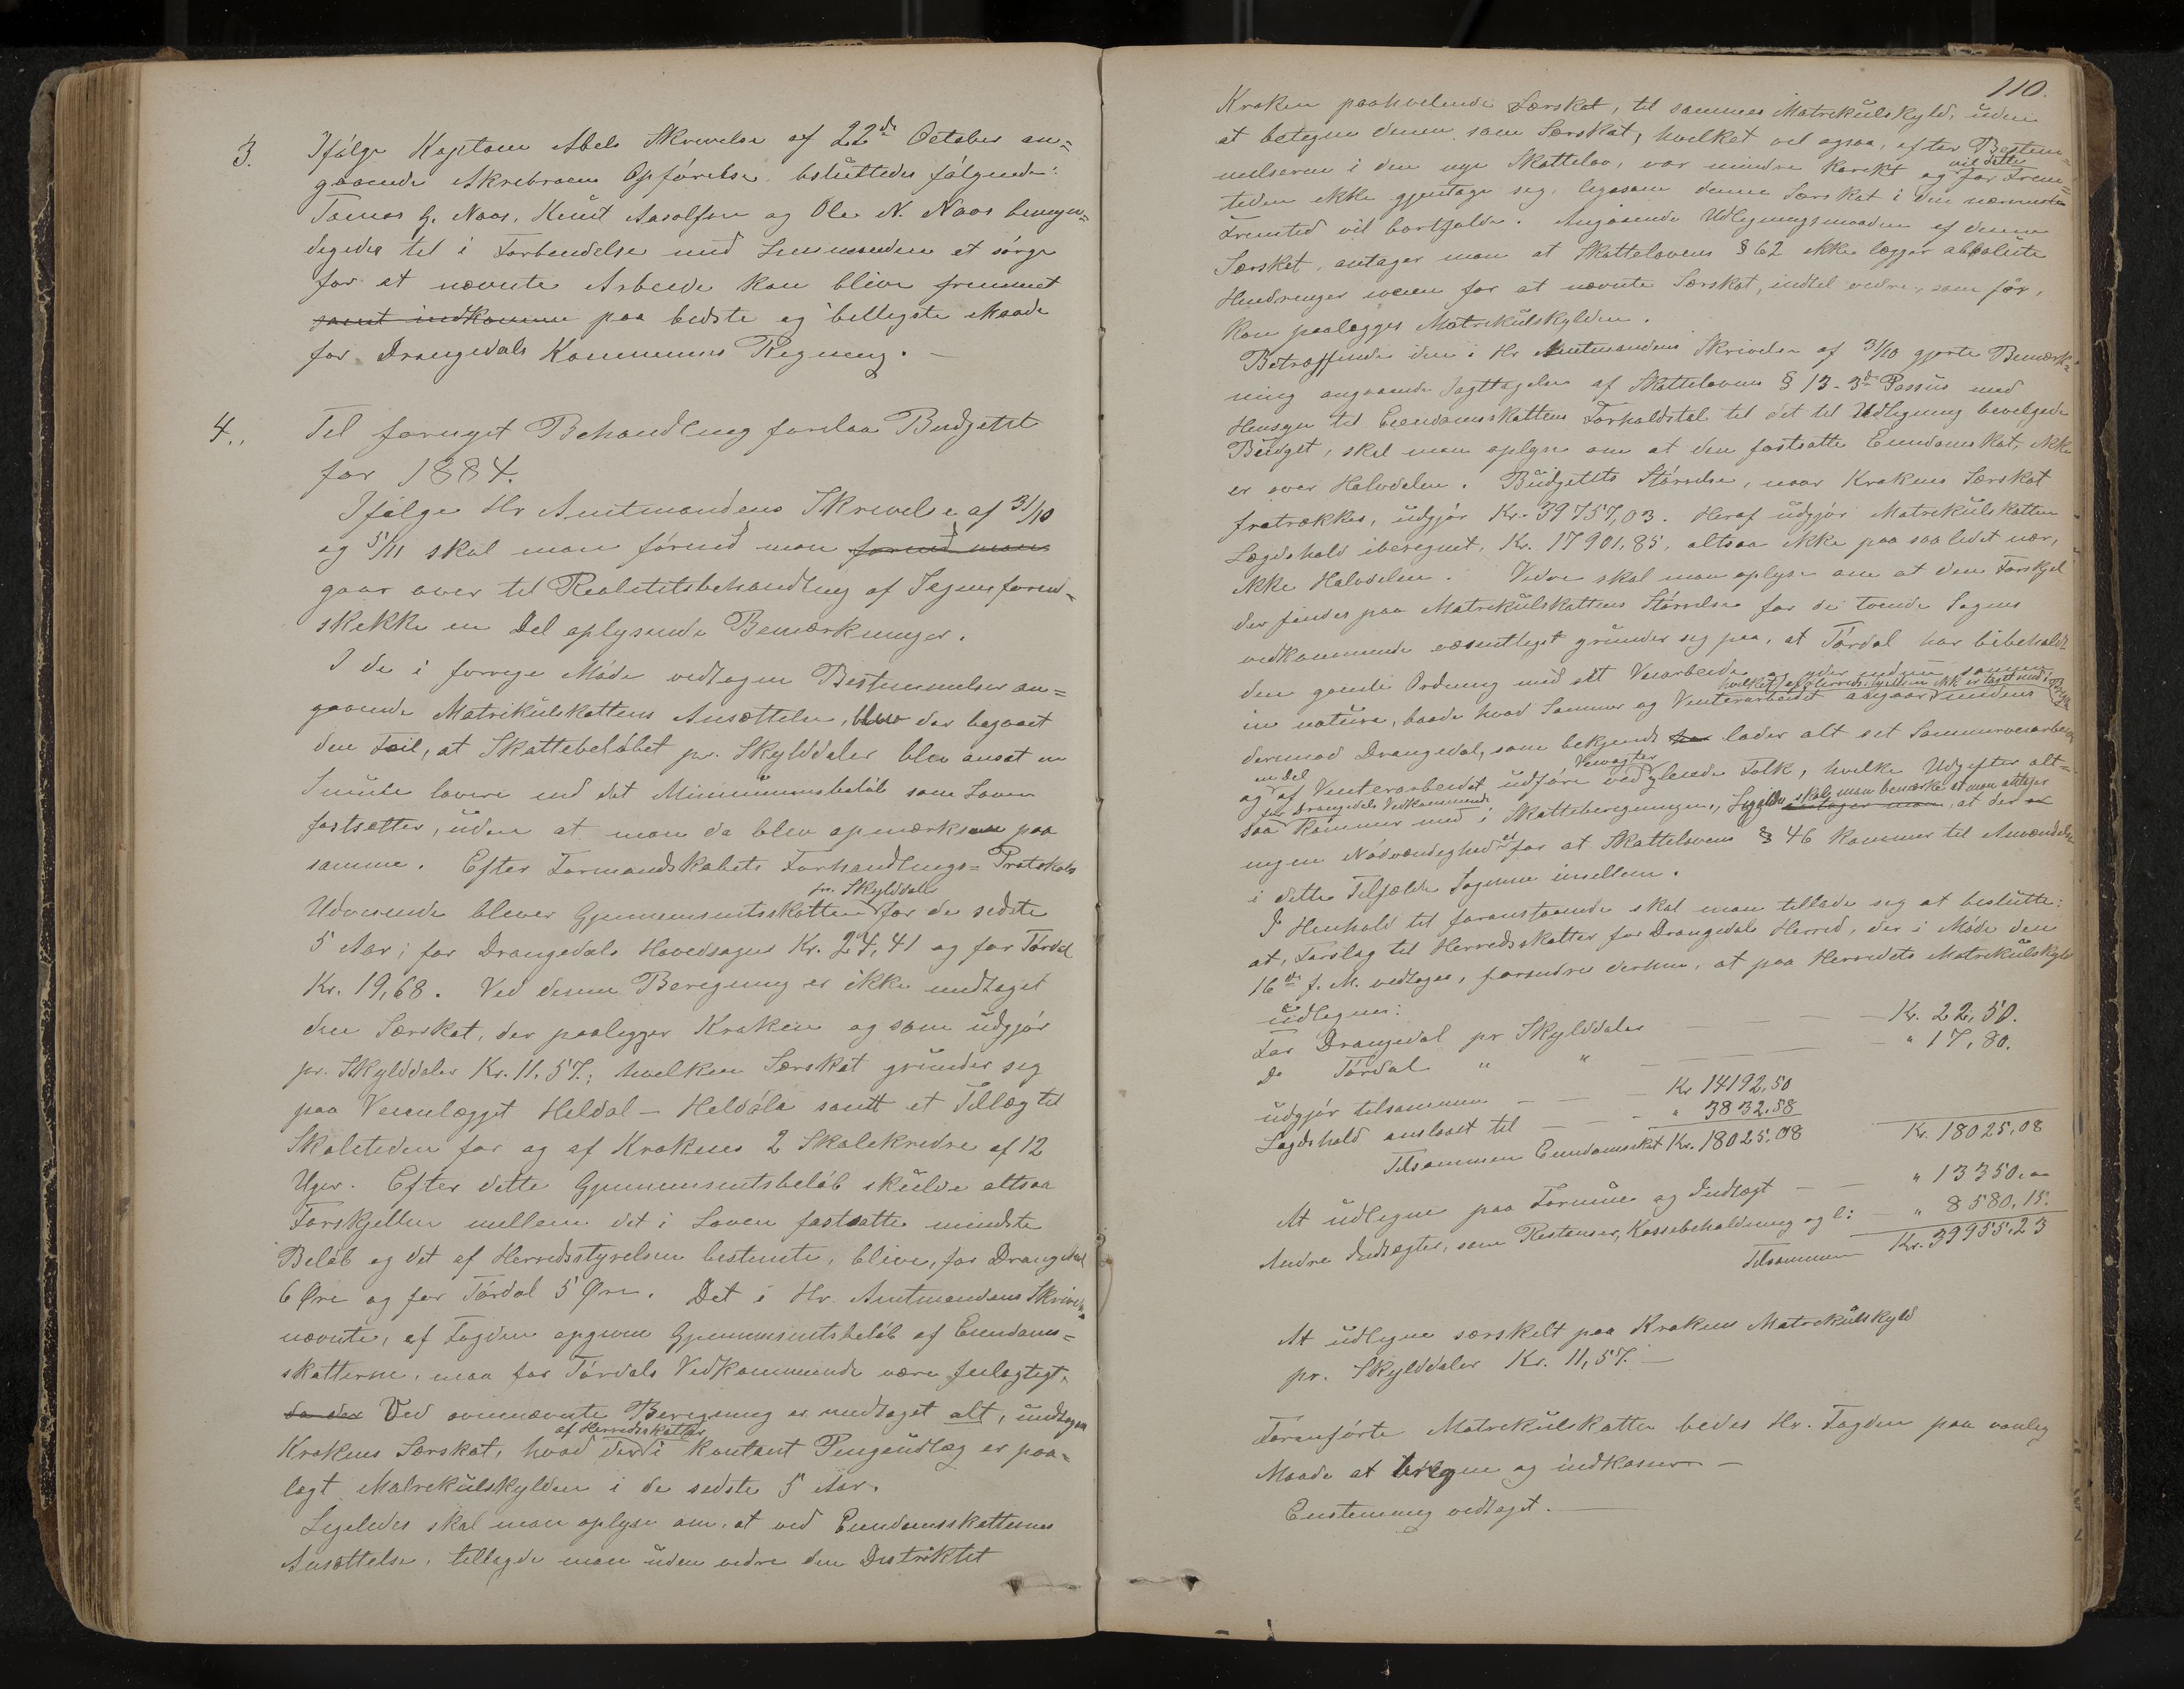 3. Ifølge Kaptein Abels Skrivelse af 22de October an=
gaaende Akrebroens Opførelse besluttedes følgende:
Tomas G. Naas, Knut Aasolfsen og Ole N. Naas bemyn=
digedes til i Forbindelse med Lensmanden at sørge
for at nævnte Arbeide kan blive fremmet
samt indkomme paa bedste og billigste Maade
for Drangedals Kommunes Regning. —
4., Til fornyet Behandling forelaa Budgettet
for 1884.
Ifølge Hr Amtmandens Skrivelse af 31/10
og 5/11 skal man førend man forend man
gaar over til Realitetsbehandling af Sagen forud-
skikke en Del oplysende Bemærkninger.
I de i forrige Møde vedtagne Bestemmelser an=
gaaende Matrikulskattens Ansættelse, blev der begaaet
den Feil, at Skattebeløbet pr. Skylddaler blev ansat en
Smule lavere end det Minimumsbeløb som Loven
fastsætter, uden at man da blev opmærksom paa
samme. Efter Formandskabets Forhandlings=Protokols
Udvisende bliver Gjennemsnitsskatten pr. Skylddaler for de sidste
5 Aar; for Drangedals Hovedsogn Kr. 24,41 og for Tørdal
Kr. 19,68. Ved denne Beregning er ikke medtaget
den Særskat, der paaligger Kroken og som udgjør
pr. Skylddaler Kr. 11,57.; hvilken Særskat grunder sig
paa Veianlægget Heldal – Heldøla samt et Tillæg til
Skoletiden for og af Krokens 2 Skolekredse af 12
Uger. Efter dette Gjennemsnitsbeløb skulde altsaa
Forskjellen mellem det i Loven fastsatte mindste
Beløb og det af Herredsstyrelsen bestemte, blive, for Drangedal
6 Øre og for Tørdal 5 Øre. Det i Hr. Amtmandens Skrivelse
nævnte, af Fogden opgivne Gjennemsnitsbeløb af Eiendoms=
skatterne, maa for Tørdals Vedkommende være feilagtigt,
da der Ved ovennævnte Beregning er medtaget alt, undtagen
Krokens Særskat, hvad der af Herredsskatter i kontant Pengeudlæg er paa-
lagt Matrikulskylden i de sidste 5 Aar.
Ligeledes skal man oplyse om, at ved Eiendomsskatternes
Ansættelse, tillagde man uden videre den Distriktet
110.
Kroken paahvilende Særskat, til sammes Matrikulskyld, uden
at betegne denne som Særskat, hvilket vel ogsaa, efter Bestem=
melserne i den nye Skattelov, var mindre korekt og vil dette for Frem=
tiden ikke gjentage sig, ligesom denne Særskat i den nærmeste
Fremtid vil bortfalde. Angaaende Udligningsmaaden af denne
Særskat, antager man at Skattelovens § 62 ikke lægger absolute
Hindringer iveien for at nævnte Særskat, indtil videre, som før,
kan paalægges Matrikulskylden.
Betræffende den i Hr Amtmandens Skrivelse af 31/10 gjorte Bemærk=
ning angaaende Iagttagelse af Skattelovens § 13 - 3de Passus med
Hensyn til Eiendomsskattens Forholdstal til det til Udligning bevilgede
Budget, skal man oplyse om at den fastsatte Eiendomsskat, ikke
er over Halvdelen. Budgettets Størrelse, naar Krokens Særskat
fratrækkes, udgjør Kr. 39757,03. Heraf udgjør Matrikulskatten
Lægdshold iberegnet, Kr. 17901,85, altsaa ikke paa saa lidet nær,
ikke Halvdelen. Videre skal man oplyse om at den Forskjel
der findes paa Matrikulskattens Størrelse for de tvende Sognes
vedkommende væsentligst grunder sig paa, at Tørdal har bibeholdt
den gamle Ordning med sit Veiarbeide og yder endnu samme
in natura, baade hvad Sommer og Vinterarbeidet angaar, medens
derimod Drangedal, som bekjendt har lader alt sit Sommerveiarbeide
og en Del af Vinterarbeidet udføre ved Veivogter leiede Folk, hvilke Udgifter alt=
saa for Drangedals Vedkommende kommer med i Skatteberegningen, Ligeledes skal man bemærke at man antager antager man, at der er
ingen Nødvendighed er for at Skattelovens § 46 kommer til Anvendelse
i dette Tilfælde Sognene imellem.
I Henhold til foranstaaende skal man tillade sig at beslutte:
at, Forslag til Herredsskatter for Drangedals Herred, der i Møde den
16de f. M. vedtoges, forandres derhen, at paa Herredets Matrikulskyld
udlignes:
For Drangedal pr Skylddaler — — — Kr. 22,50.
Do Tørdal " " — — — " 17,80.
udgjør tilsammen — — — Kr 14192,50
Lægdshold anslaaet til — — " 3832.58
Tilsammen Eiendomsskat Kr. 18025,08 Kr. 18025,08
At udligne paa Formue og Indtægt — — " 13350,00
Andre Indtægter, som Restanser, Kassebeholdning og l: — " 8580,15.
Tilsammen Kr. 39955,23
At udligne særskilt paa Krokens Matrikulskyld
pr. Skylddaler Kr. 11,57. —
Foranførte Matrikulskatter bedes Hr. Fogden paa vanlig
Maade at udligne og indkasere —
Enstemmig vedtaget. —